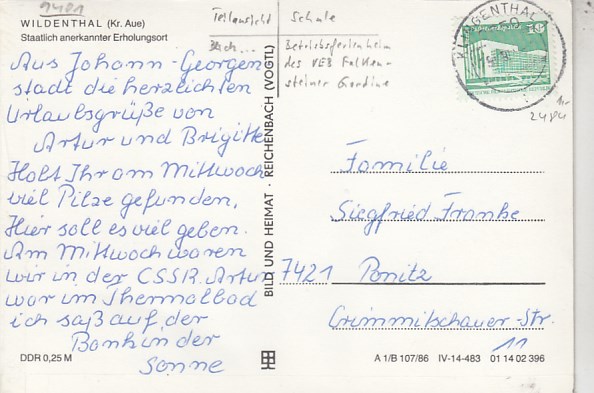 9401
WILDENTHAL (Kr. Aue)
Staatlich anerkannter Erholungsort
Aus Johann-Georgen
stadt die herzlichsten
Urlaubsgrüße von
Artur und Brigitte
Holt Ihr am Mittwoch
viel Pilze gefunden,
Hier soll es viel geben.
Am Mittwoch waren
wir in der CSSR. Artur
war im Thermalbad
ich saß auf der
Bank in der
Sonne
DDR 0,25 M
Teilansicht
Schule
Betriebsferienheim
des VEB Falken-
steiner Gardine
BILD UND HEIMAT · REICHENBACH (VOGTL)
10
2484
Familie
Siegfried Franke
7421 Ponitz
Crimmitschauer-Str.
11
A 1/B 107/86 IV-14-483 01 14 02 396